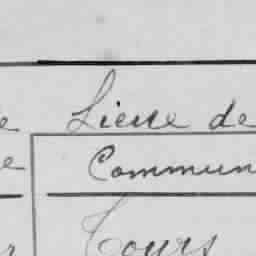 e Lieue de
e Commun
Tours